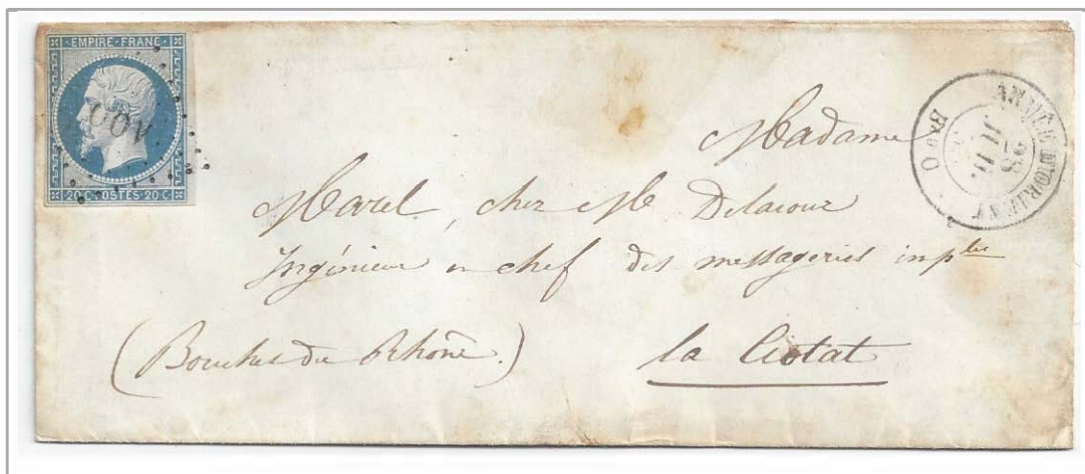 EMPIRE · FRANC ·
20 C · POSTES · 20 C
ARMÉE D'ORIENT
28
JUIL.
Bau O
Madame
Marel, chez Mr Delacour
Ingénieur en chef des messageries imp^les
(Bouches du Rhône.)
la Ciotat